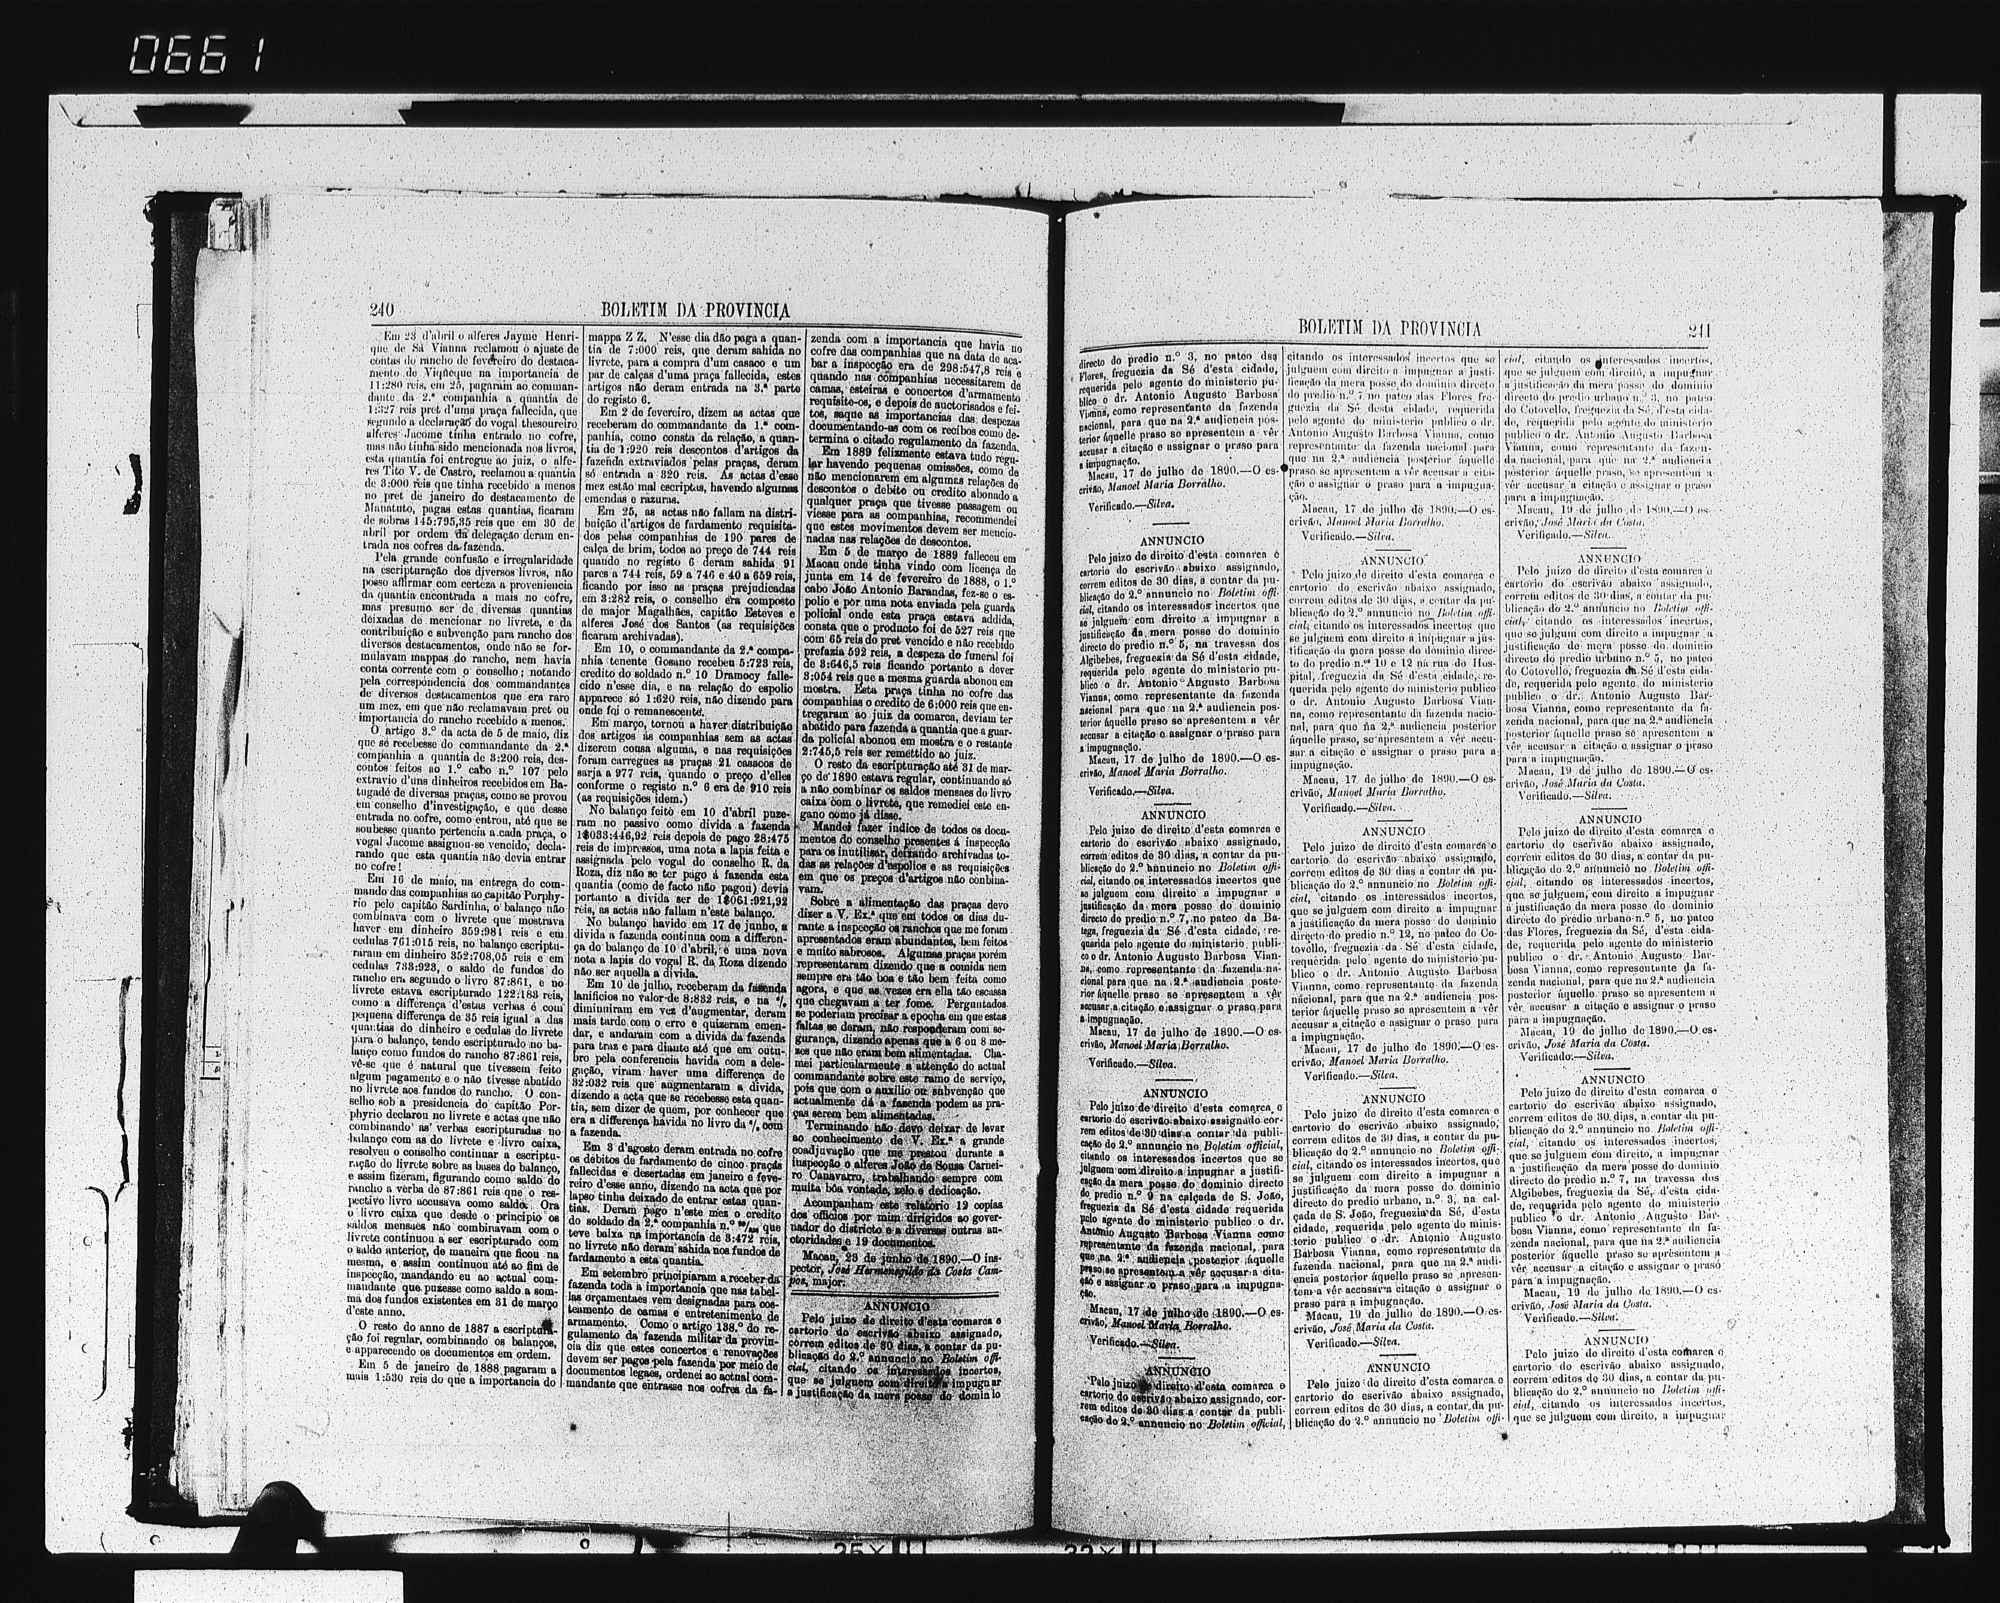 0661
240
BOLETIM DA PROVINCIA
Em 23 d'abril o alferes Jayme Henri-
que de Sá Vianna reclamou o ajuste de
contas do rancho de fevereiro do destaca-
mento de Viqueque na importancia de
11:280 reis, em 25, pagaram ao comman-
dante da 2.ª companhia a quantia de
1:327 reis pret d'uma praça fallecida, que
segundo a declaração do vogal thesoureiro
alferes Jacome tinha entrado no cofre,
mas não tinha sido mencionada nos livros,
esta quantia foi entregue ao juiz, o alfe-
res Tito V. de Castro, reclamou a quantia
de 3:000 reis que tinha recebido a menos
no pret de janeiro do destacamento de
Manatuto, pagas estas quantias, ficaram
de sobras 145:795,35 reis que em 30 de
abril por ordem da delegação deram en-
trada nos cofres da fazenda.
Pela grande confusão e irregularidade
na escripturação dos diversos livros, não
posso affirmar com certeza a proveniencia
da quantia encontrada a mais no cofre,
mas presumo ser de diversas quantias
deixadas de mencionar no livrete, e da
contribuição e subvenção para rancho dos
diversos destacamentos, onde não se for-
mulavam mappas do rancho, nem havia
conta corrente com o conselho; notando
pela correspondencia dos commandantes
de diversos destacamentos que era raro
um mez, em que não reclamavam pret ou
importancia do rancho recebido a menos.
O artigo 3.º da acta de 5 de maio, diz
que se recebesse do commandante da 2.ª
companhia a quantia de 3:200 reis, des-
contos feitos ao 1.º cabo n.º 107 pelo
extravio d'uns dinheiros recebidos em Ba-
tugadé de diversas praças, como se provou
em conselho d'investigação, e que desse
entrada no cofre, como entrou, até que se
soubesse quanto pertencia a cada praça, o
vogal Jacome assignou-se vencido, decla-
rando que esta quantia não devia entrar
no cofre!
Em 16 de maio, na entrega do com-
mando das companhias ao capitão Porphy-
rio pelo capitão Sardinha, o balanço não
combinava com o livrete que mostrava
haver em dinheiro 359:981 reis e em
cedulas 761:015 reis, no balanço escriptu-
raram em dinheiro 352:708,05 reis e em
cedulas 733:923, o saldo de fundos do
rancho era segundo o livro 87:861, e no
livrete estava escripturado 122:183 reis,
como a differença d'estas verbas é com
pequena differença de 35 reis igual a das
quantias do dinheiro e cedulas do livrete
para o balanço, tendo escripturado no ba-
lanço como fundos do rancho 87:861 reis,
vê-se que é natural que tivessem feito
algum pagamento e o não tivesse abatido
no livrete aos fundos do rancho. O con-
selho sob a presidencia do capitão Por-
phyrio declarou no livrete e actas que não
combinando as verbas escripturadas no
balanço com as do livrete e livro caixa,
resolveu o conselho continuar a escriptu-
ração do livrete sobre as bases do balanço,
e assim fizeram, figurando como saldo do
rancho a verba de 87:861 reis que o res-
pectivo livro accusava como saldo. Ora
o livro caixa que desde o principio os
saldos mensaes não combinavam com o
livrete continuou a ser escripturado com
o saldo anterior, de maneira que ficou na
mesma, e assim continuou até ao fim de
inspecção, mandando eu ao actual com-
mandante que puzesse como saldo a som-
ma dos fundos existentes em 31 de março
d'este anno.
O resto do anno de 1887 a escriptura-
ção foi regular, combinando os balanços,
e apparecendo os documentos em ordem.
Em 5 de janeiro de 1888 pagaram a
mais 1:530 reis do que a importancia do
mappa Z Z. N'esse dia dão paga a quan-
tia de 7:000 reis, que deram sahida no
livrete, para a compra d'um casaco e um
par de calças d'uma praça fallecida, estes
artigos não deram entrada na 3.ª parte
do registo 6.
Em 2 de fevereiro, dizem as actas que
receberam do commandante da 1.ª com-
panhia, como consta da relação, a quan-
tia de 1:920 reis descontos d'artigos da
fazenda extraviados pelas praças, deram
só entrada a 320 reis. As actas d'esse
mez estão mal escriptas, havendo algumas
emendas e razuras.
Em 25, as actas não fallam na distri-
buição d'artigos de fardamento requisita-
dos pelas companhias de 190 pares de
calça de brim, todos ao preço de 744 reis
quando no registo 6 deram sahida 91
pares a 744 reis, 59 a 746 e 40 a 659 reis,
ficando por isso as praças prejudicadas
em 3:282 reis, o conselho era composto
de major Magalhães, capitão Esteves e
alferes José dos Santos (as requisições
ficaram archivadas).
Em 10, o commandante da 2.ª compa-
nhia tenente Gosano recebeu 5:723 reis,
credito do soldado n.º 10 Dramocy falle-
cido n'esse dia, e na relação do espolio
apparece só 1:620 reis, não dizendo para
onde foi o remanescente.
Em março, tornou a haver distribuição
dos artigos ás companhias sem as actas
dizerem cousa alguma, e nas requisições
foram carregues as praças 21 casacos de
sarja a 977 reis, quando o preço d'elles
conforme o registo n.º 6 era de 910 reis
(as requisições idem.)
No balanço feito em 10 d'abril puze-
ram no passivo como divida a fazenda
1$033:446,92 reis depois de pago 28:475
reis de impressos, uma nota a lapis feita e
assignada pelo vogal do conselho R. da
Roza, diz não se ter pago á fazenda esta
quantia (como de facto não pagou) devia
portanto a divida ser de 1$061:921,92
reis, as actas não fallam n'este balanço.
No balanço havido em 17 de junho, a
divida a fazenda continua com a differen-
ça do balanço de 10 d'abril, e uma nova
nota a lapis do vogal R. da Roza dizendo
não ser aquella a divida.
Em 10 de julho, receberam da fazenda
lanificios no valor de 8:832 reis, e na %
diminuiram em vez d'augmentar, deram
mais tarde com o erro e quizeram emen-
dar, e andaram com a divida da fazenda
para traz e para diante até que em outu-
bro pela conferencia havida com a dele-
gação, viram haver uma differença de
32:032 reis que augmentaram a divida,
dizendo a acta que se recebesse esta quan-
tia, sem dizer de quem, por conhecer que
era a differença havida no livro da % com
a fazenda.
Em 3 d'agosto deram entrada no cofre
os débitos de fardamento de cinco praças
fallecidas e desertadas em janeiro e feve-
reiro d'esse anno, dizendo na acta que por
lapso tinha deixado de entrar estas quan-
tias. Deram pago n'este mez o credito
do soldado da 2.ª companhia n.º que
teve baixa na importancia de 3:472 reis,
no livrete não deram sahida nos fundos de
fardamento a esta quantia.
Em setembro principiaram a receber da
fazenda toda a importancia que nas tabel-
las orçamentaes vem designadas para cos-
teamento de camas e entretenimento de
armamento. Como o artigo 138.º do re-
gulamento da fazenda militar da provin-
cia diz que estes concertos e renovações
devem ser pagos pela fazenda por meio de
documentos legaes, ordenei ao actual com-
mandante que entrasse nos cofres da fa-
zenda com a importancia que havia no
cofre das companhias que na data de aca-
bar a inspecção era de 298:547,8 reis e
quando nas companhias necessitarem de
camas, esteiras e concertos d'armamento
requisite-os, e depois de auctorisados e fei-
tos, saque as importancias das despezas
documentando-as com os recibos como de-
termina o citado regulamento da fazenda.
Em 1889 felizmente estava tudo regu-
lar havendo pequenas omissões, como de
não mencionarem em algumas relações de
descontos o debito ou credito abonado a
qualquer praça que tivesse passagem ou
viesse para as companhias, recommendei
que estes movimentos devem ser mencio-
nadas nas relações de descontos.
Em 5 de março de 1889 falleceu em
Macau onde tinha vindo com licença de
junta em 14 de fevereiro de 1888, o 1.º
cabo João Antonio Barandas, fez-se o es-
polio e por uma nota enviada pela guarda
policial onde esta praça estava addida,
consta que o producto foi de 527 reis que
com 65 reis do pret vencido e não recebido
prefazia 592 reis, a despeza do funeral foi
de 3:646,5 reis ficando portanto a dever
3:054 reis que a mesma guarda abonou em
mostra. Esta praça tinha no cofre das
companhias o credito de 6:000 reis que en-
tregaram ao juiz da comarca, deviam ter
abatido para fazenda a quantia que a guar-
da policial abonou em mostra e o restante
2:745,5 reis ser remettido ao juiz.
O resto da escripturação até 31 de mar-
ço de 1890 estava regular, continuando só
a não combinar os saldos mensaes do livro
caixa com o livrete, que remediei este en-
gano como já disse.
Mandei fazer indice de todos os docu-
mentos do conselho presentes á inspecção
para os inutilisar, deixando archivadas to-
das as relações d'espolios e as requisições
em que os preços d'artigos não combina-
vam.
Sobre a alimentação das praças devo
dizer a V. Ex.ª que em todos os dias du-
rante a inspecção os ranchos que me foram
apresentados eram abundantes, bem feitos
e muito saborosos. Algumas praças porém
representaram dizendo que a comida nem
sempre era tão boa e tão bem feita como
agora, e que as vezes era ella tão escassa
que chegavam a ter fome. Perguntados
se poderiam precisar a epocha em que estas
faltas se deram, não responderam com se-
gurança, dizendo apenas que a 6 ou 8 me-
zes que não eram bem alimentadas. Cha-
mei particularmente a attenção do actual
commandante sobre este ramo de serviço,
pois que com o auxilio ou subvenção que
actualmente dá a fazenda podem as pra-
ças serem bem alimentadas.
Terminando não devo deixar de levar
ao conhecimento de V. Ex.ª a grande
coadjuvação que me prestou durante a
inspecção o alferes João de Sousa Carnei-
ro Canavarro, trabalhando sempre com
muita bôa vontade, zelo e dedicação.
Acompanham este relatorio 12 copias
dos officios por mim dirigidos ao gover-
nador do districto e a diversas outras au-
ctoridades e 19 documentos.
Macau, 23 de junho de 1890.—O ins-
pector, José Hermenegildo da Costa Cam-
pos, major.
ANNUNCIO
Pelo juizo de direito d'esta comarca e
cartorio do escrivão abaixo assignado,
correm editos de 30 dias, a contar da pu-
blicação do 2.º annuncio no Boletim offi-
cial, citando os interessados incertos,
que se julguem com direito a impugnar
a justificação da mera posse do dominio
BOLETIM DA PROVINCIA
241
directo do predio n.º 3, no pateo das
Flores, freguezia da Sé d'esta cidade,
requerida pelo agente do ministerio pu-
blico o dr. Antonio Augusto Barbosa
Vianna, como representante da fazenda
nacional, para que na 2.ª audiencia pos-
terior áquelle praso se apresentem a vêr
accusar a citação e assignar o praso para
a impugnação.
Macau, 17 de julho de 1890.—O es-
crivão, Manoel Maria Borralho.
Verificado.—Silva.
ANNUNCIO
Pelo juizo de direito d'esta comarca e
cartorio do escrivão abaixo assignado,
correm editos de 30 dias, a contar da pu-
blicação do 2.º annuncio no Boletim offi-
cial, citando os interessados incertos que
se julguem com direito a impugnar a
justificação da mera posse do dominio
directo do predio n.º 5, na travessa dos
Algibebes, freguezia da Sé d'esta cidade,
requerida pelo agente do ministerio pu-
blico o dr. Antonio Augusto Barbosa
Vianna, como representante da fazenda
nacional para que na 2.ª audiencia pos-
terior áquelle praso se apresentem a vêr
accusar a citação e assignar o praso para
a impugnação.
Macau, 17 de julho de 1890.—O es-
crivão, Manoel Maria Borralho.
Verificado.—Silva.
ANNUNCIO
Pelo juizo de direito d'esta comarca e
cartorio do escrivão abaixo assignado,
correm editos de 30 dias, a contar da pu-
blicação do 2.º annuncio no Boletim offi-
cial, citando os interessados incertos que
se julguem com direito a impugnar a
justificação da mera posse do dominio
directo do predio n.º 7, no pateo da Ba-
tega, freguezia da Sé d'esta cidade, re-
querida pelo agente do ministerio publi-
co o dr. Antonio Augusto Barbosa Vian-
na, como representante da fazenda na-
cional para que na 2.ª audiencia poste-
rior áquelle praso se apresentem a vêr
accusar a citação e assignar o praso para
a impugnação.
Macau, 17 de julho de 1890.—O es-
crivão, Manoel Maria Borralho.
Verificado.—Silva.
ANNUNCIO
Pelo juizo de direito d'esta comarca e
cartorio do escrivão abaixo assignado cor-
rem editos de 30 dias a contar da publi-
cação do 2.º annuncio no Boletim official,
citando os interessados incertos que se
julguem com direito a impugnar a justifi-
cação da mera posse do dominio directo
do predio n.º 9 na calçada de S. João,
freguezia da Sé d'esta cidade requerida
pelo agente do ministerio publico o dr.
Antonio Augusto Barbosa Vianna como
representante da fazenda nacional, para
que na 2.ª audiencia posterior áquelle
praso se apresentem a vêr accusar a cita-
ção e assignar o praso para a impugna-
ção.
Macau, 17 de julho de 1890.—O es-
crivão, Manoel Maria Borralho.
Verificado.—Silva.
ANNUNCIO
Pelo juizo de direito d'esta comarca e
cartorio do escrivão abaixo assignado, cor-
rem editos de 30 dias a contar da publi-
cação do 2.º annuncio no Boletim official,
citando os interessados incertos que se
julguem com direito a impugnar a justi-
ficação da mera posse do dominio directo
do predio n.º 7 no pateo das Flores fre-
guezia da Sé desta cidade, requerida
pelo agente do ministerio publico o dr.
Antonio Augusto Barbosa Vianna, como
representante da fazenda nacional para
que na 2.ª audiencia posterior áquelle
praso se apresentem a vêr accusar a cita-
ção e assignar o praso para a impugna-
ção.
Macau, 17 de julho de 1890.—O es-
crivão, Manoel Maria Borralho.
Verificado.—Silva.
ANNUNCIO
Pelo juizo de direito d'esta comarca e
cartorio do escrivão abaixo assignado,
correm editos de 30 dias, a contar da pu-
blicação do 2.º annuncio no Boletim offi-
cial, citando os interessados incertos que
se julguem com direito a impugnar a jus-
tificação da mera posse do dominio direc-
to do predio n.ºs 10 e 12 na rua do Hos-
pital, freguezia da Sé d'esta cidade, re-
querida pelo agente do ministerio publico
o dr. Antonio Augusto Barbosa Vian-
na, como representante da fazenda nacio-
nal, para que na 2.ª audiencia posterior
áquelle praso, se apresentem a vêr accu-
sar a citação e assignar o praso para a
impugnação.
Macau, 17 de julho de 1890.—O es-
crivão, Manoel Maria Borralho.
Verificado.—Silva.
ANNUNCIO
Pelo juizo de direito d'esta comarca e
cartorio do escrivão abaixo assignado,
correm editos de 30 dias a contar da pu-
blicação do 2.º annuncio no Boletim offi-
cial, citando os interessados incertos,
que se julguem com direito a impugnar
a justificação da mera posse do dominio
directo do predio n.º 12, no pateo do Co-
tovello, freguezia da Sé d'esta cidade,
requerida pelo agente do ministerio pu-
blico o dr. Antonio Augusto Barbosa
Vianna, como representante da fazenda
nácional, para que na 2.ª audiencia pos-
terior áquelle praso se apresentem a vêr
accusar a citação e assignar o praso para
a impugnação.
Macau, 17 de julho de 1890.—O es-
crivão, Manoel Maria Borralho.
Verificado.—Silva.
ANNUNCIO
Pelo juizo de direito d'esta comarca e
cartorio do escrivão abaixo assignado,
correm editos de 30 dias, a contar da pu-
blicação do 2.º annuncio no Boletim offi-
cial, citando os interessados incertos, que
se julguem com direito a impugnar a
justificação da mera posse do dominio
directo do predio urbano, n.º 3, na cal-
çada de S. João, freguezia da Sé, d'esta
cidade, requerida pelo agente do minis-
terio publico o dr. Antonio Augusto
Barbosa Vianna, como representante da
fazenda nacional, para que na 2.ª audi-
encia posterior áquelle praso se apresen-
tem a vêr accusar a citação e assignar o
praso para a impugnação.
Macau, 19 de julho de 1890.—O es-
crivão, José Maria da Costa.
Verificado.—Silva.
ANNUNCIO
Pelo juizo de direito d'esta comarca e
cartorio do escrivão abaixo assignado,
correm editos de 30 dias, a contar da pu-
blicação do 2.º annuncio no Boletim offi-
cial, citando os interessados incertos,
que se julguem com direito, a impugnar
a justificação da mera posse do dominio
directo do predio urbano n.º 3, no pateo
do Cotovello, freguezia da Sé, d'esta cida-
de, requerida pelo agente do ministerio
publico o dr. Antonio Augusto Barbosa
Vianna, como representante da fazen-
da nacional, para que na 2.ª audiencia
posterior áquelle praso, se apresentem a
vêr accusar a citação e assignar o praso
para a impugnação.
Macau, 19 de julho de 1890.—O es-
crivão, José Maria da Costa.
Verificado.—Silva.
ANNUNCIO
Pelo juizo de direito d'esta comarca e
cartorio do escrivão abaixo assignado,
correm editos de 30 dias, a contar da pu-
blicação do 2.º annuncio no Boletim offi-
cial, citando os interessados incertos,
que se julgum com direito a impugnar a
justificação de mera posse do dominio
directo do predio urbano n.º 5, no pateo
do Cotovello, freguezia da Sé d'esta cida-
de, requerida pelo agente do ministerio
publico o dr. Antonio Augusto Bar-
bosa Vianna, como representante da fa-
zenda nacional, para que na 2.ª audiencia
posterior áquelle praso se apresentem a
vêr accusar a citação e assignar o praso
para a impugnação.
Macau, 19 de julho de 1890.—O es-
crivão, José Maria da Costa.
Verificado.—Silva.
ANNUNCIO
Pelo juizo de direito d'esta comarca e
cartorio do escrivão abaixo assignado,
correm editos de 30 dias, a contar da pu-
blicação do 2.º annuncio no Boletim offi-
cial, citando os interessados incertos,
que se julguem, com direito a impugnar
a justificação da mera posse do dominio
directo do predio urbano n.º 5, no pateo
das Flores, freguezia da Sé, d'esta cida-
de, requerida pelo agente do ministerio
publico o dr. Antonio Augusto Bar-
bosa Vianna, como representante da fa-
zenda nacional, para que na 2.ª audiencia
posterior áquelle praso se apresentem a
vêr accusar a citação e assignar o praso
para a impugnação.
Macau, 19 de julho de 1890.—O es-
crivão, José Maria da Costa.
Verificado.—Silva.
ANNUNCIO
Pelo juizo de direito d'esta comarca e
cartorio do escrivão abaixo assignado,
correm editos de 30 dias, a contar da pu-
blicação do 2.º annuncio no Boletim offi-
cial, citando os interessados incertos,
que se julguem com direito, a impugnar
a justificação da mera posse do dominio
directo do predio n.º 7, na travessa dos
Algibebes, freguezia da Sé, d'esta cida-
de, requerida pelo agente do ministerio
publico o dr. Antonio Augusto Bar-
bosa Vianna, como representante da fa-
zenda nacional, para que na 2.ª audiencia
posterior áquelle praso se apresentem a
vêr accusar a citação e assignar o praso
pára a impugnação.
Macau, 19 de julho de 1890.—O es-
crivão, José Maria da Costa.
Verificado.—Silva.
ANNUNCIO
Pelo juizo de direito d'esta comarca e
cartorio do escrivão abaixo assignado,
correm editos de 30 dias, a contar da pu-
blicação do 2.º annuncio no Boletim offi-
cial, citando os interessados incertos,
que se julguem com direito, a impugnar